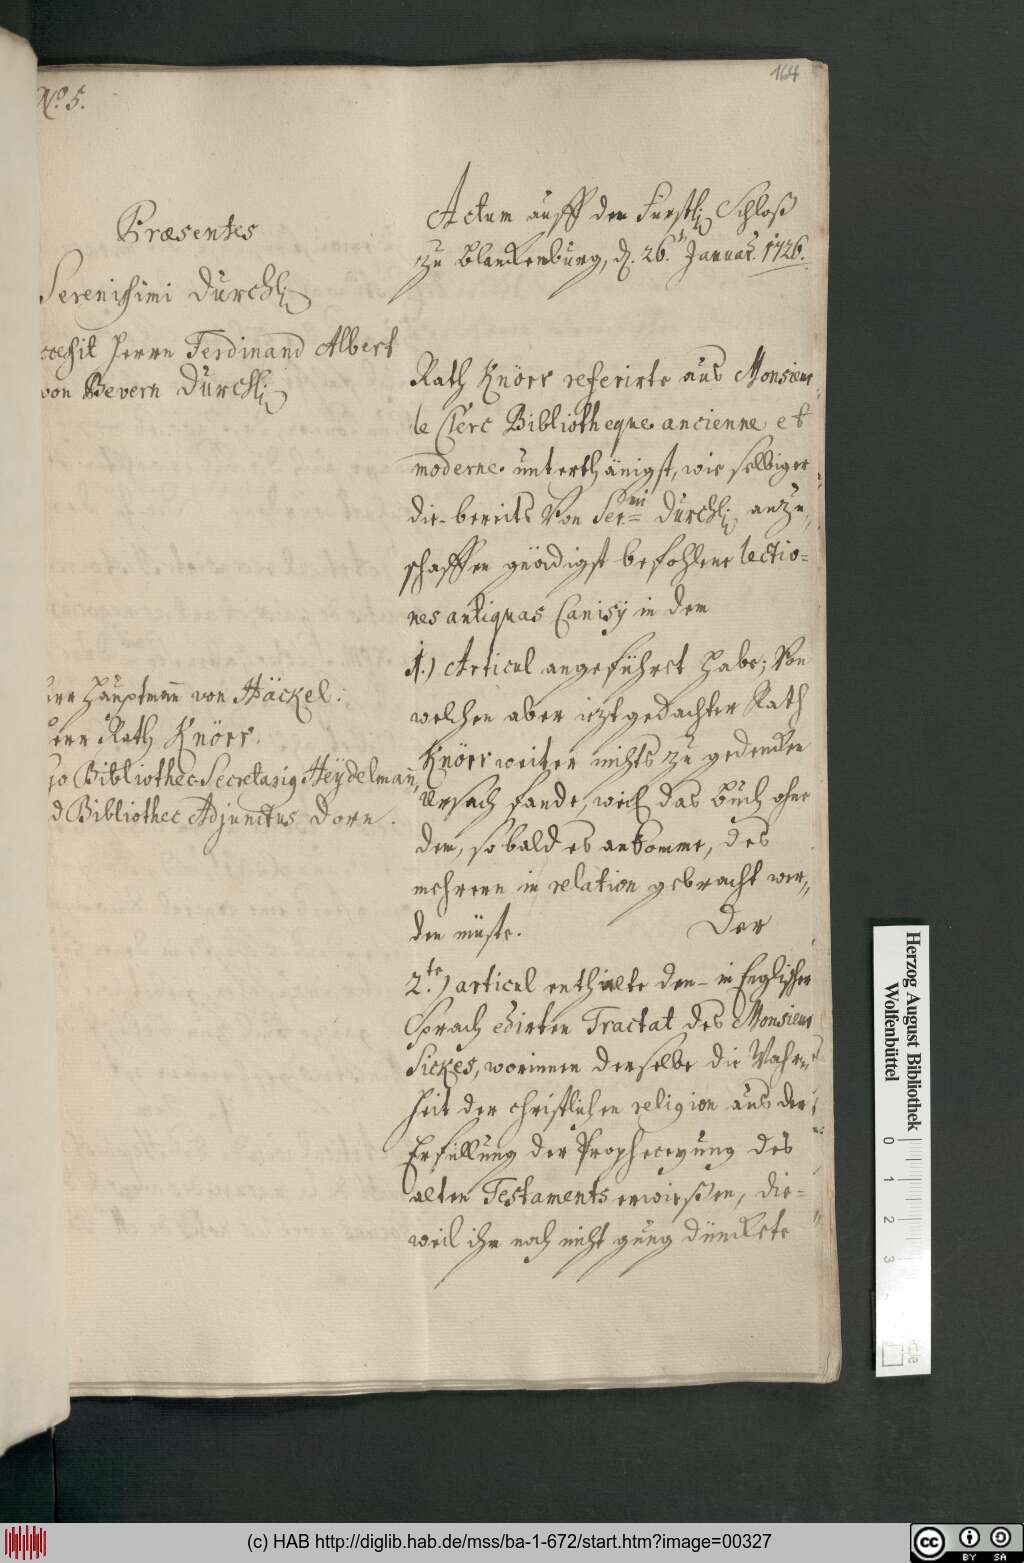 164
No. 5.
Præsentes
Serenissimi Durchl.
Herrn Ferdinand Albert
von Bevern Durchl.
Hauptmann von Häckel.
Rath Knörr.
Bibliothec-Secretarig Heÿdelmann,
Bibliothec Adjunctus Dorn.
Actum auff dem Fürstl. Schloß
zu Blanckenburg, d. 26. Januar. 1726.
Rath Knörr referirte aus Monsieur
le Clerc Bibliotheque ancienne et
moderne unterthänigst, wie selbiger
die bereits von Ser.mi Durchl. anzu„
schaffen gnädigst befohlene lectio=
nes antiquas Canisÿ in dem
1.) Articul angeführet habe; von
welchen aber itztgedachter Rath
Knörr weiter nichts zu gedencken
Ursach fande, weil das Buch ohne
dem, so bald es ankomme, des
mehrern in relation gebracht wer„
den müste. Der
2.te) articul enthielte den in Englischer
Sprach edirten Tractat des Monsieur
Sickes, worinnen derselbe die Wahr„
heit der christlichen religion aus der
Erfüllung der Propheceyung des
alten Testaments erwießen, die=
weil ihm noch nicht gnug dünckete
Herzog August Bibliothek
Wolfenbüttel
0
1
2
3
(c) HAB http://diglib.hab.de/mss/ba-1-672/start.htm?image=00327
cc BY SA